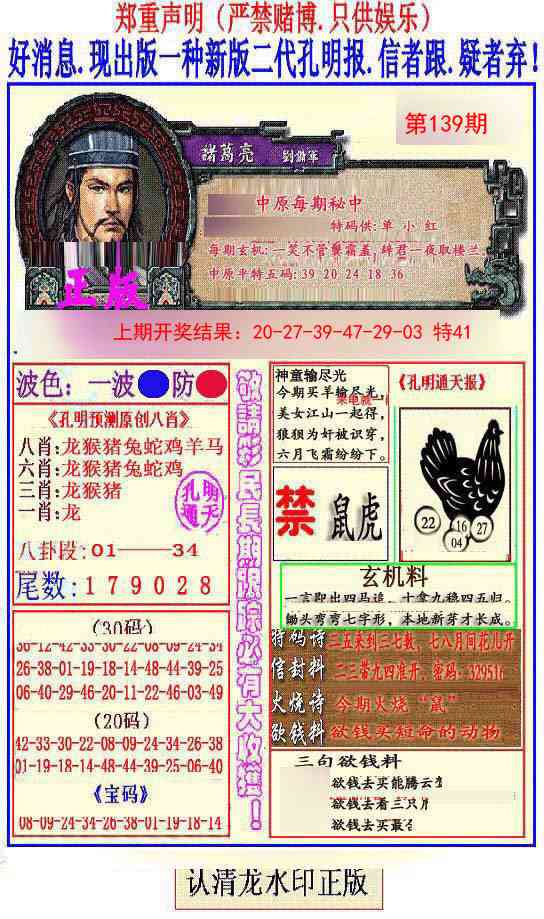 郑重声明（严禁赌博.只供娱乐）
好消息.现出版一种新版二代孔明报.信者跟.疑者弃!
第139期
諸葛亮 劉備軍
中原每期秘中
特码供:单 小 红
每期玄机:一笑不管爨霜盖,辞君一夜取楼兰.
中原平特五码:39 20 24 18 36
正版
上期开奖结果：20-27-39-47-29-03 特41
波色：一波 防
《孔明预测原创八肖》
八肖:龙猴猪兔蛇鸡羊马
六肖:龙猴猪兔蛇鸡
三肖:龙猴猪
一肖:龙
孔明
通天
八卦段:01——34
尾数:179028
(30码)
36-12-42-33-30-22-08-09-24-34
26-38-01-19-18-14-48-44-39-25
06-40-29-46-20-11-22-46-03-49
(20码)
42-33-30-22-08-09-24-34-26-38
01-19-18-14-48-44-39-25-06-40
《宝码》
08-09-24-34-26-38-01-19-18-14
敬請彩民長期跟踪必有大收獲！
神童输尽光
今期买羊输尽光,
美女江山一起得,
狼狈为奸被识穿,
六月飞霜纷纷下。
禁
鼠虎
《孔明通天报》
22
16
27
04
玄机料
一言即出四马追，十拿九稳四五归。
锄头弯弯七字形，本地新芽才长成。
特码诗 三五来到三七数，七八月间花儿开
信封料 二三带九四准开，密码：329516
火烧诗 今期火烧“鼠”
欲钱料 欲钱买短命的动物
三句欲钱料
欲钱去买能腾云
欲钱去看三只
欲钱去买最
认清龙水印正版